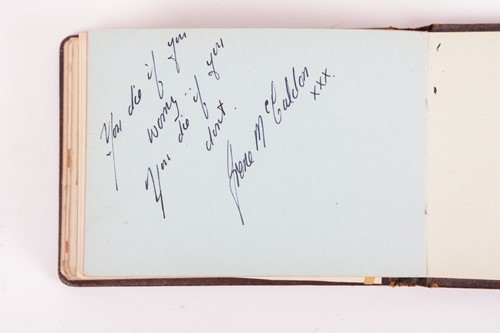 You die if you
worry
You die if you
dont.
Irene McCaldon
xxx.